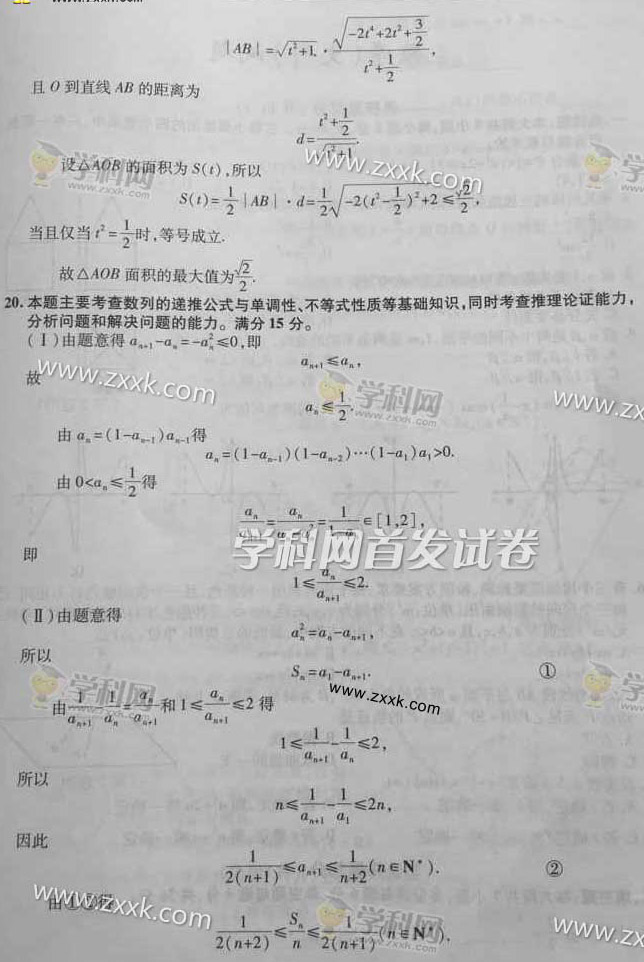 |AB|=√(t²+1)·√(-2t⁴+2t²+3/2)/(t²+1/2),
且 O 到直线 AB 的距离为
d=(t²+1/2)/√(t²+1).
设△AOB 的面积为 S(t),所以
S(t)=1/2|AB|·d=1/2√(-2(t²-1/2)²+2)≤√2/2,
当且仅当 t²=1/2时,等号成立.
故△AOB 面积的最大值为√2/2.
20. 本题主要考查数列的递推公式与单调性、不等式性质等基础知识,同时考查推理论证能力,
分析问题和解决问题的能力。满分 15 分。
(Ⅰ)由题意得 aₙ₊₁-aₙ=-aₙ²≤0,即
aₙ₊₁≤aₙ,
故
aₙ≤1/2.
由 aₙ=(1-aₙ₋₁)aₙ₋₁得
aₙ=(1-aₙ₋₁)(1-aₙ₋₂)⋯(1-a₁)a₁>0.
由 0<aₙ≤1/2得
aₙ/aₙ₊₁=aₙ/(aₙ-aₙ²)=1/(1-aₙ)∈[1,2],
学科网首发试卷
即
1≤aₙ/aₙ₊₁≤2.
(Ⅱ)由题意得
aₙ²=aₙ-aₙ₊₁,
所以
Sₙ=a₁-aₙ₊₁. ①
由1/aₙ₊₁-1/aₙ=aₙ/aₙ₊₁和 1≤aₙ/aₙ₊₁≤2 得
1≤1/aₙ₊₁-1/aₙ≤2,
所以
n≤1/aₙ₊₁-1/a₁≤2n,
因此
1/(2(n+1))≤aₙ₊₁≤1/(n+2)(n∈N*). ②
由①②得
1/(2(n+2))≤Sₙ/n≤1/(2(n+1))(n∈N*).
学科网
www.zxxk.com